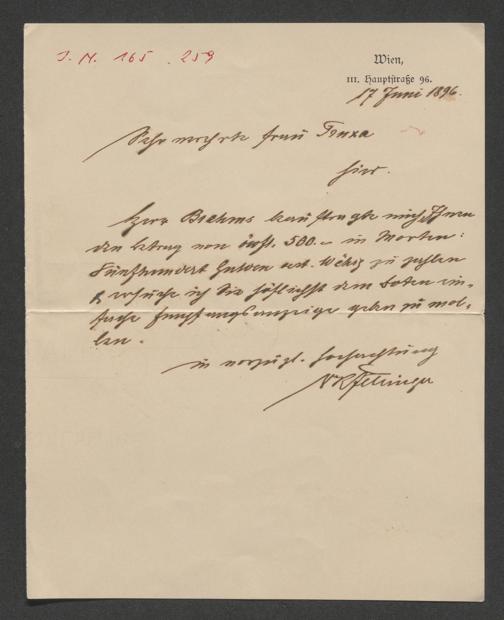 J. N. 165.259
Wien,
III. Hauptstraße 96.
17 Juni 1896.
Sehr verehrte Frau Truxa
hier.
Herr Brahms beauftragte mich Ihnen
den Betrag von 500.– in Worten:
Fünfhundert Gulden öst. Währg zu zahlen
& ersuche ich Sie höflichst dem Boten ein-
fache Empfangsanzeige geben zu wol-
len.
in vorzügl. Hochachtung
Fellinger